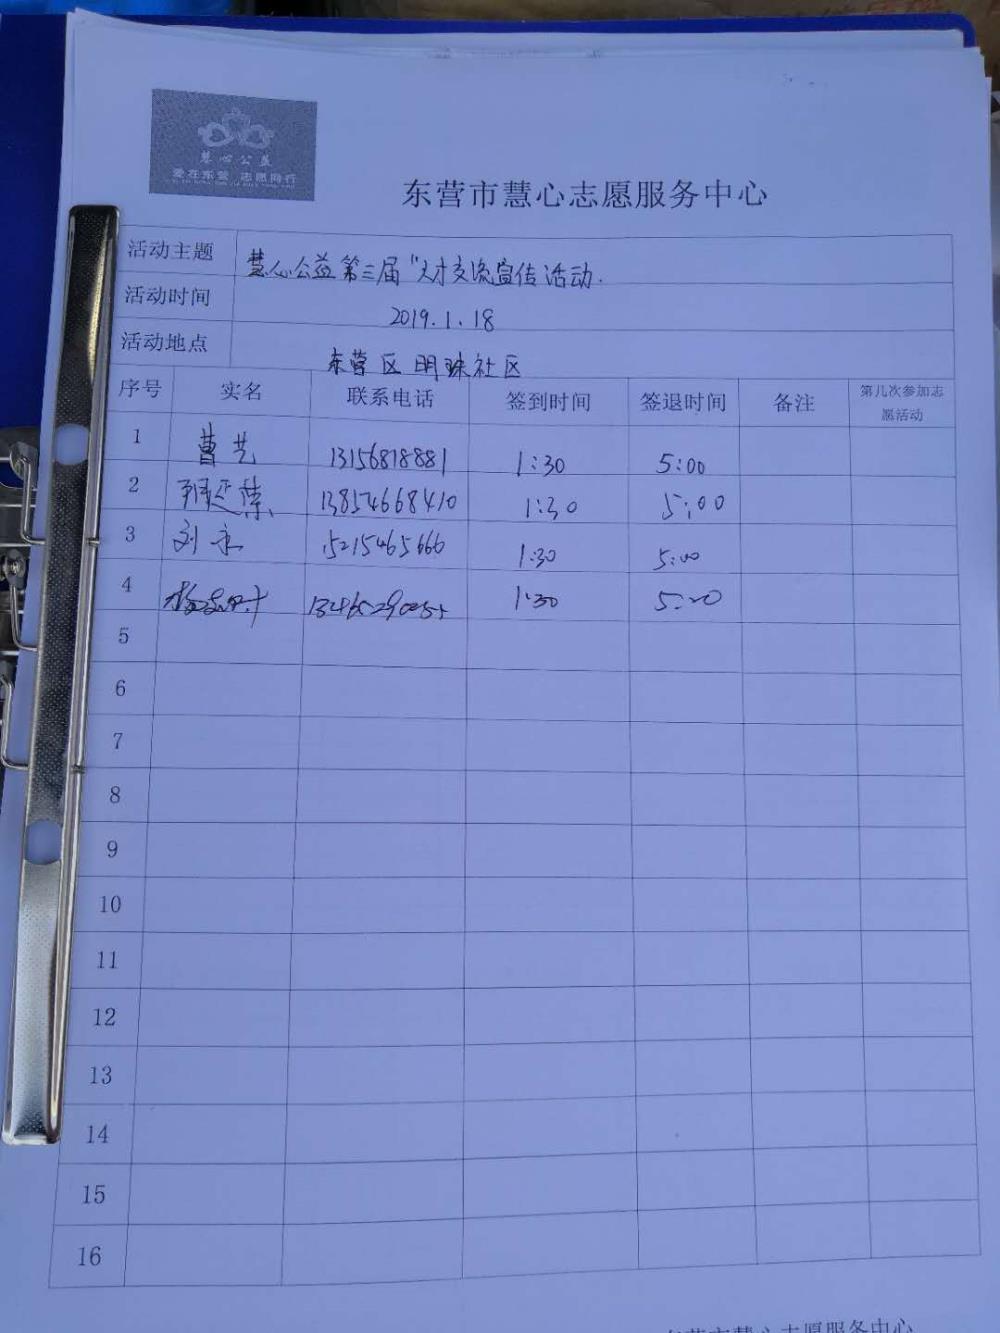 慧心公益
爱在东营 志愿同行
东营市慧心志愿服务中心
活动主题 慧心公益第三届"人才交流宣传活动.
活动时间 2019.1.18
活动地点 东营区明珠社区
序号 实名 联系电话 签到时间 签退时间 备注 第几次参加志愿活动
1 曹艺 13156818881 1:30 5:00
2 13854668410 1:30 5:00
3 刘永 15215465666 1:30 5:00
4 1:30 5:00
5
6
7
8
9
10
11
12
13
14
15
16
东营市慧心志愿服务中心